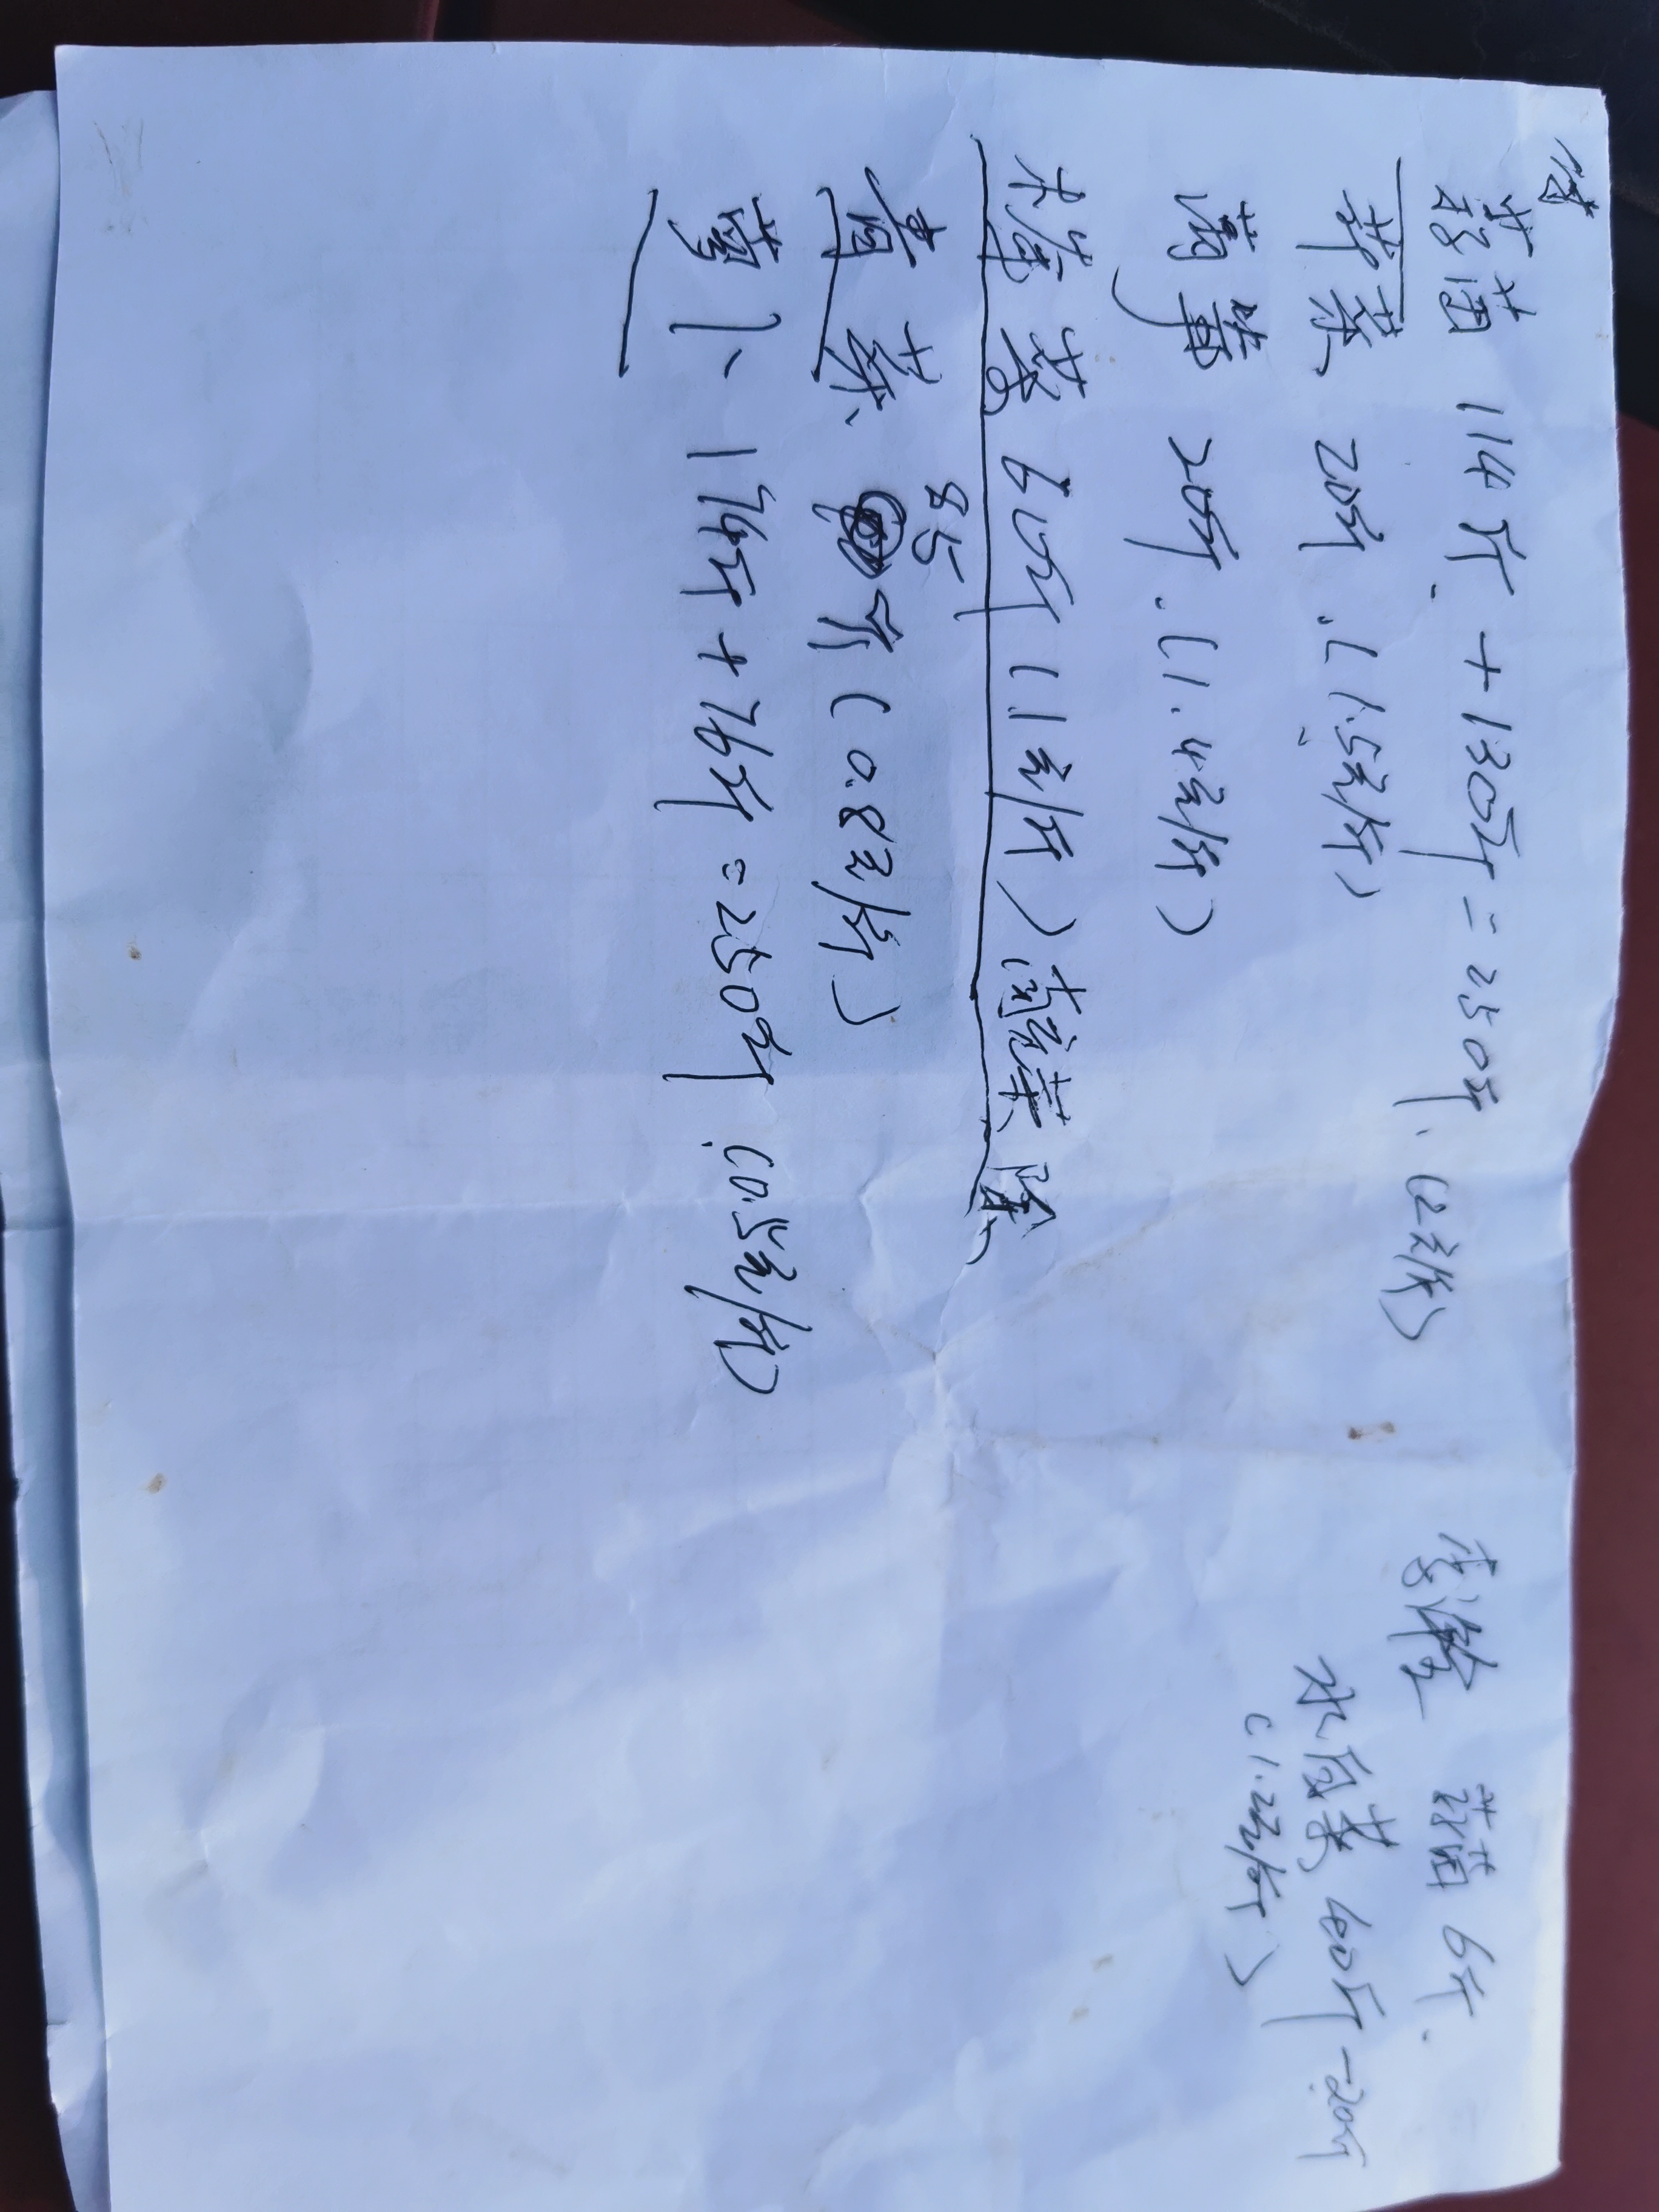 蘑菇 114斤+130斤=250斤.(2元/斤)
菜 20斤.(1.5元/斤)
莴笋 20斤.(1.4元/斤)
菜 60斤(1元/斤)
青菜 85斤(0.8元/斤)
萝卜 174斤+76斤=250斤.(0.5元/斤)
李 蘑菇 6斤.
水白菜 40斤-20斤
(1.2元/斤)